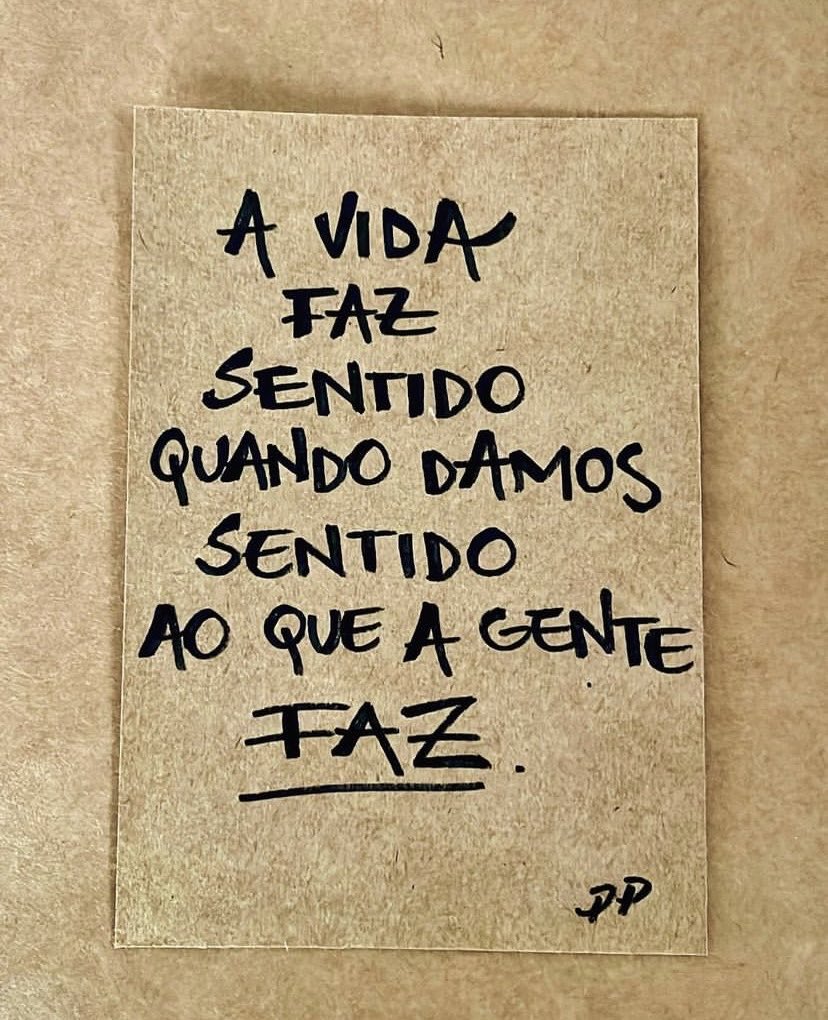 A VIDA
FAZ
SENTIDO
QUANDO DAMOS
SENTIDO
AO QUE A GENTE
FAZ.
PP